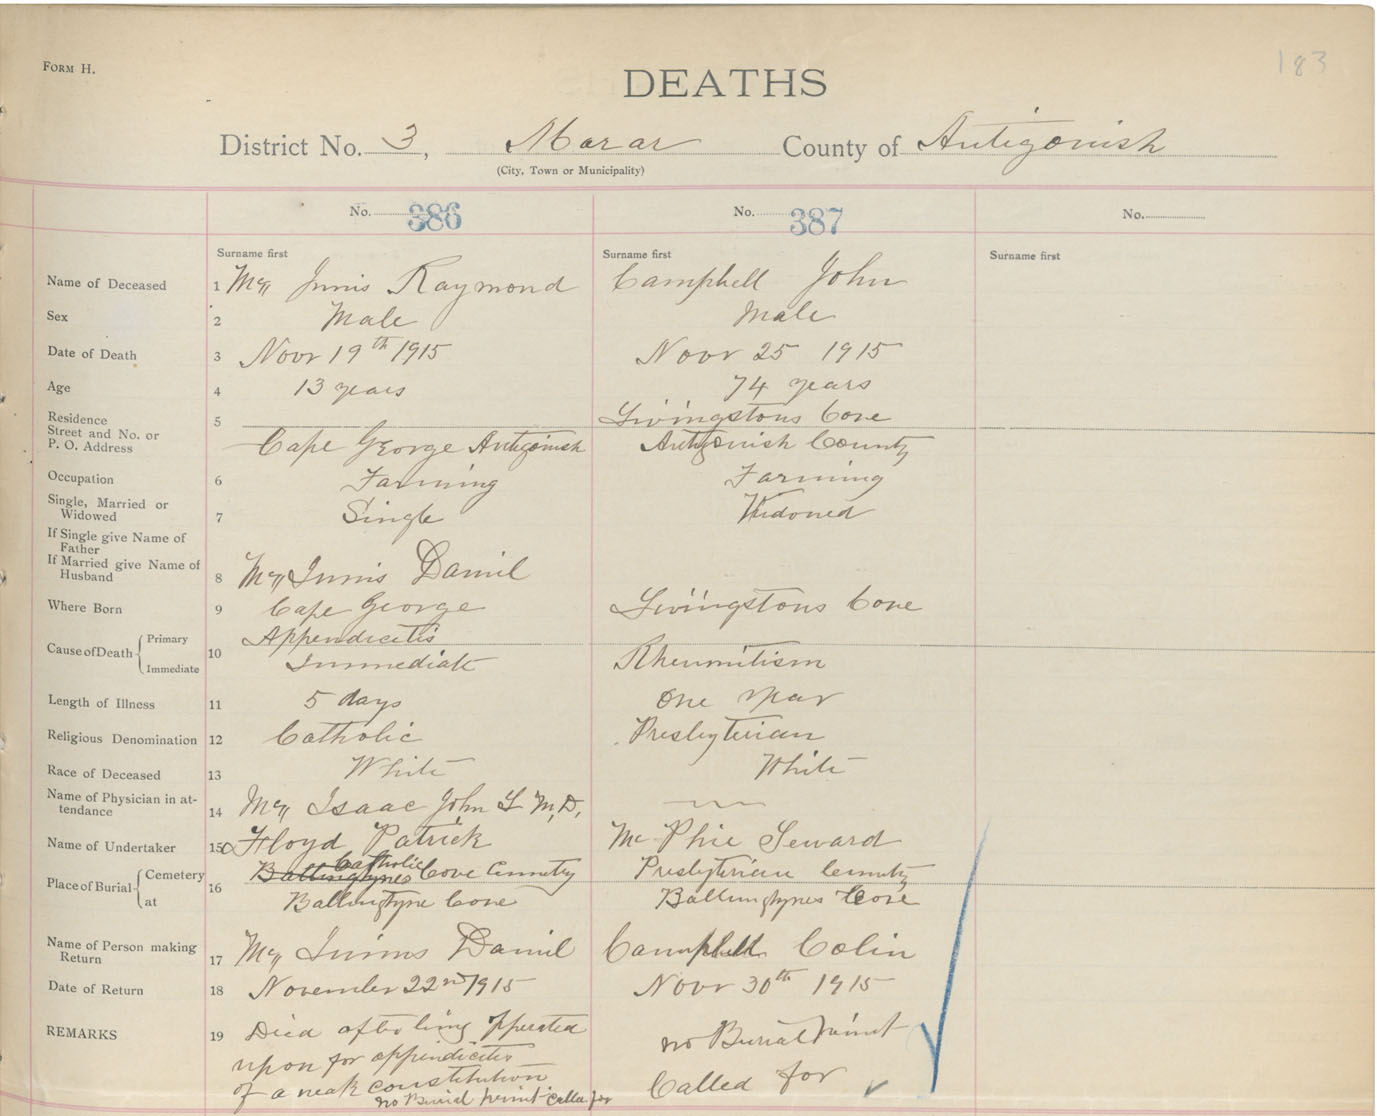 183
FORM H.
DEATHS
District No. 3, Morar County of Antigonish
(City, Town or Municipality)
No. 386 No. 387 No.
Surname first Surname first Surname first
Name of Deceased 1 Mc Innis Raymond Campbell John
Sex 2 Male Male
Date of Death 3 Novr 19th 1915 Novr 25 1915
Age 4 13 years 74 years
Residence 5 Livingstons Cove
Street and No. or
P. O. Address Cape George Antigonish Antigonish County
Occupation 6 Farming Farming
Single, Married or
Widowed 7 Single Widowed
If Single give Name of
Father
If Married give Name of
Husband 8 Mc Innis Daniel
Where Born 9 Cape George Livingstons Cove
Cause of Death Primary 10 Appendicitis
Immediate Immediate Rheumitism
Length of Illness 11 5 days One year
Religious Denomination 12 Catholic Presbyterian
Race of Deceased 13 White White
Name of Physician in at-
tendance 14 Mc Isaac John L M,D,
Name of Undertaker 15 Floyd Patrick Mc Phie Seward
Place of Burial Cemetery 16 Ballingtynes Catholic Cove Cemetry Presbyterian Cemetry
at Ballingtyne Cove Ballingtynes Cove
Name of Person making
Return 17 Mc Innis Daniel Campbell Colin
Date of Return 18 November 22nd 1915 Novr 30th 1915
REMARKS 19 Died after being opperated no Burial Permit
upon for appendicitis
of a weak constitution Called for
no Burial Permit Called for